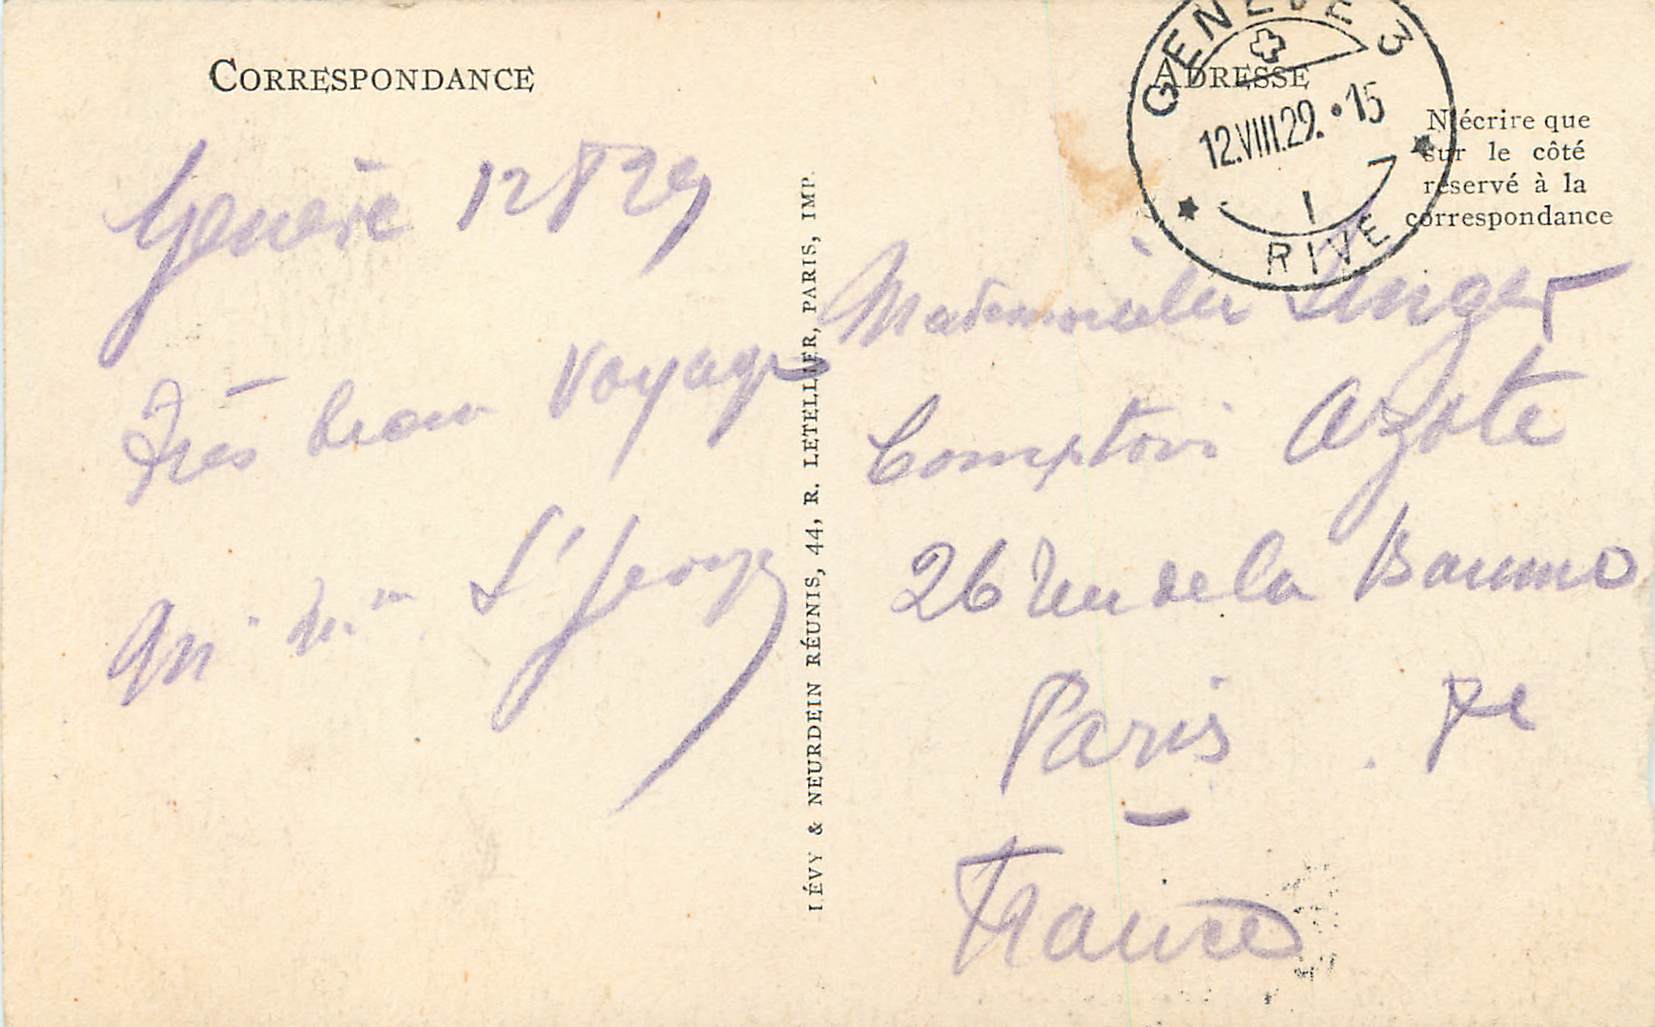 CORRESPONDANCE
Genève 12 8 29
Très beau voyage
Mr Mme St Georges
LÉVY & NEURDEIN RÉUNIS, 44, R. LETELLIER, PARIS, IMP.
GENÈVE 3
12.VIII.29.•15
1
RIVE
ADRESSE
N'écrire que
sur le côté
réservé à la
correspondance
Mademoiselle
Comptoir Azote
26 rue de la Baume
Paris 7e
France